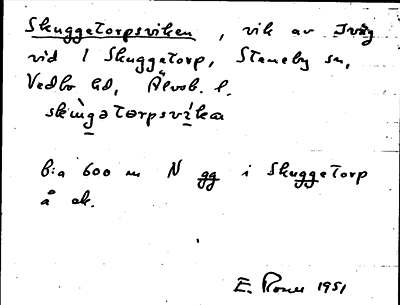 Skuggetorpsviken, vik av Iväg
vid l Skuggetorp, Steneby sn,
Vedbo hd, Älvsb. l.
skùgətɷrpsvíkɑ
b:a 600 m N gg i Skuggetorp
å ek.
E. Rones 1951